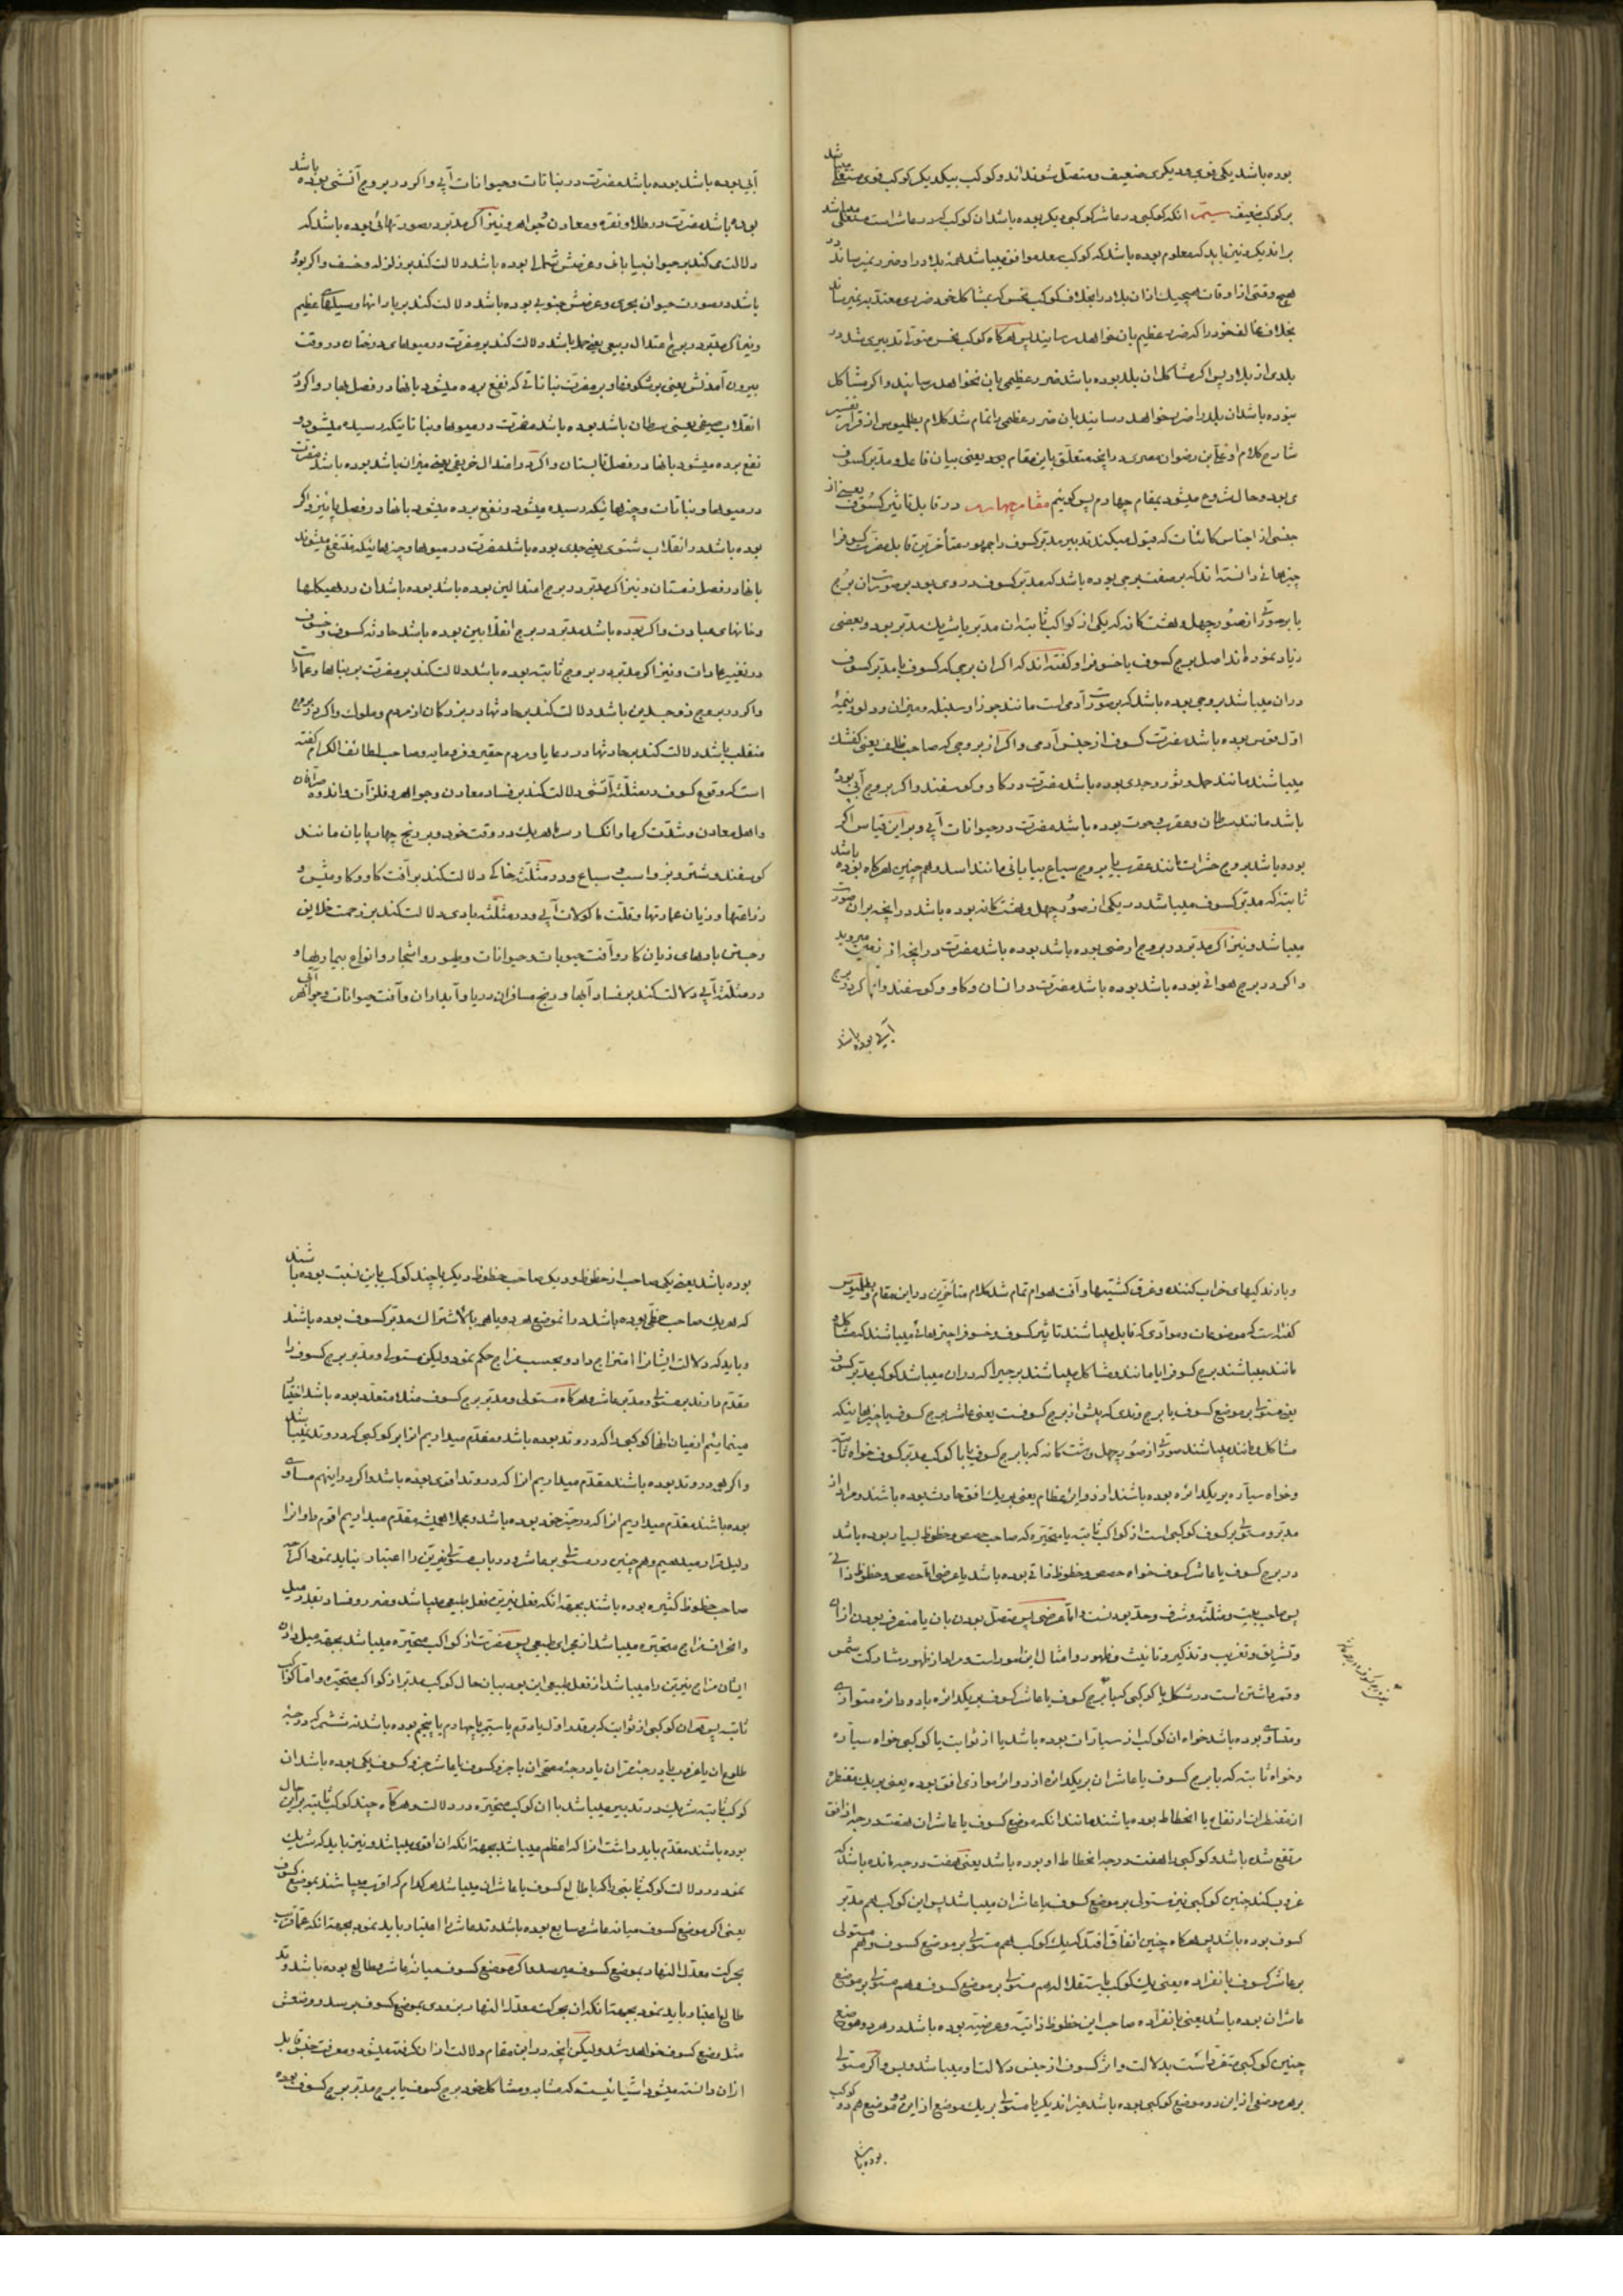 بوده باشد یکی قوی و دیگری ضعیف و متصل شوند اند و کوکب بیکدیگر کوکب قوی مستعلی میباشد
بر کوکب ضعیف سیّم انکه کوکبی در عاشر کوکبی دیگر بوده باشد ان کوکب که در عاشر است مستعلی میباشد
بر اندیگر و نیز باید که معلوم بوده باشد که کوکب سعد موافق میباشد همه بلاد را و ضرر نمیرساند در
هیچ وقتی از اوقات هیچیک از ان بلاد را بخلاف کوکب نحس که مشاکل خود ضرری معتد به نمیرساند
بخلاف مخالف خود را که ضرر عظیم بان خواهد رسانید پس هرگاه کوکب نحس متولی تدبیری شد در
بلدی از بلاد پس اگر مشاکل ان بلد بوده باشد ضرر عظیمی باین نخواهد رسانید و اگر مشاکل
نبوده باشد ان بلد را ضرر خواهد رسانید بان ضرر عظیمی و اتمام شد کلام بطلمیوس از قرار تفسیر
شارح کلام او علی بن رضوان مصری در انچه متعلق باین مقام بود یعنی بیان فاعل و مدبّر کسوف
می بود و حال شروع میشود بمقام چهارم پس گوئیم مقام چهارم در قابل تاثیر کسوف یعنی از
جنسی از اجناس کائنات که قبول میکند تدبیر مدبّر کسوف را جمهور متأخرین قابل مضرت کسوف را
چیزهائی دانسته اند که بر صفت برجی بوده باشد که مدبّر کسوف در وی بود بر صورت ان برج
یا بر صورتی از صُوَر چهل و هشت کانه که یکی از کواکب ثابته ان مدبّر یا شریک مدبّر بود و بعضی
زیاد نموده اند اصل برج کسوف یا خسوف را و گفته اند که اگر ان برجی که کسوف یا مدبّر کسوف
در ان میباشد بروجی بوده باشد که بر صورت آدمی است مانند جوزا و سنبله و میزان و دلو و نیمهٔ
اوّل قوس بوده باشد مضرت کسوف از جنس آدمی و اگر از بروجی که صاحب ظلف یعنی کفشک
میباشند مانند حمل و ثور و جدی بوده باشد مضرت در کاو و کوسفند و اگر بروج آبی بوده
باشد مانند سرطان و عقرب و حوت بوده باشد مضرت در حیوانات آبی و بر این قیاس اگر
بوده باشد بروج حشرات مانند عقرب یا بروج سباع بیابانی مانند اسد و همچنین هرگاه بوده باشد
ثابته که مدبّر کسوف میباشد در یکی از صُوَر چهل و هشت کانه بوده باشد در انچه بر ان صورت
میباشد و نیز اگر مدبّر در بروج ارضی بوده باشد بوده باشد مضرت در انچه از زمین میروید
و اگر در برج هوائی بوده باشد بوده باشد مضرت در انسان و کاو و کوسفند و اگر در برج
آبی بوده باشد
آبی بوده باشد بوده باشد مضرت در نباتات و حیوانات آبی و اگر در بروج آتشی بوده باشد
بوده باشد مضرت در طلا و نقره و معادن جواهر و نیز اگر مدبّر در صورتهائی بوده باشد که
دلالت می کند بر حیوان بیابانی و عرضش شمالی بوده باشد دلالت کند بر زلزله و خسف و اگر بوده
باشد در صورت حیوان بحری و عرضش جنوبی بوده باشد دلالت کند بر بارانها و سیلهای عظیم
و نیز اگر مدبّر در برج اعتدال ربیعی یعنی حمل باشد دلالت کند بر مضرت در میوهای درختان در وقت
بیرون آمدنش یعنی بر شکوفها و بر مضرت نباتاتی که نفع برده میشود بانها در فصل بهار و اگر در
انقلاب صیفی یعنی سرطان باشد بوده باشد مضرت در میوها و نباتاتیکه رسیده میشود و
نفع برده میشود بانها در فصل تابستان و اگر در اعتدال خریفی یعنی میزان باشد بوده باشد مضرت
در میوها و نباتات و چیزهائیکه رسیده میشود و نفع برده میشود بانها در فصل پائیز و اگر
بوده باشد در انقلاب شتوی یعنی جدی بوده باشد مضرت در میوها و چیزهائیکه منتفع میشوند
بانها در فصل زمستان و نیز اگر مدبّر در برج اعتدالین بوده باشد بوده باشد ان در هیکلها
و خانهای عبادت و اگر بوده باشد مدبّر در برج انقلابین بوده باشد حادثه کسوف و خسوف
در تغییر عادات و نیز اگر مدبّر در بروج ثابته بوده باشد دلالت کند بر مضرت بر بناها و عمارات
و اگر در بروج ذو جسدین باشد دلالت کند بر حادثها در بزرکان از مردم و ملوک و اگر در بروج
منقلب باشد دلالت کند بر حادثها در رعایا و مردم حقیر و فرومایه و صاحب لطائف الکرام گفته
است که وقوع کسوف در مثلّثهٔ آتشی دلالت کند بر فساد معادن و جواهر و فلزّات و اندوه صرّافان
و اهل معادن و شدّت گرما و انکسار سرما هر یک در وقت خود و بر رنج چهارپایان مانند
کوسفند و شتر و بز و اسب و سباع و در مثلّثهٔ خاکی دلالت کند بر آفت کاو و کاومیش و
زراعتها و زیان عمارتها و قلّت ماکولات آبی و در مثلّثه بادی دلالت کند بر زحمت خلایق
و جستن بادهای زیان کار و آفت حبوبات و حیوانات و طیور و اشجار و انواع بیماریها و
در مثلّثهٔ آبی دلالت کند بر فساد آبها و رنج مسافران دریا و آبداران و آفت حیوانات و جواهر آبی
و بارندکیهای خراب کننده و غرق کشتیها و آفت هوام تمام شد کلام متأخرین در این مقام و بطلمیوس
گفته است که موضوعات و موادّی که قابل میباشند تاثیر کسوف و خسوف را چیزهائی میباشند که مشاکل و
مانند میباشند برج کسوف را یا مانند و مشاکل میباشند برجیرا که در ان میباشد کوکب مدبّر کسوف
یعنی مستولی بر موضع کسوف یا برج وتدی که پیش از برج کسوفست یعنی عاشر برج کسوف یا چیزهائیکه
مشاکل و مانند میباشند صورتی از صُوَر چهل و هشت کانه که با برج کسوف یا با کوکب مدبّر کسوف خواه ثابته
و خواه سیّاره بر یکدائره بوده باشند از دوائر عظام یعنی بر یک افق حادث بوده باشند و مراد از
مدبّر و مستولی بر کسوف کوکبی است از کواکب ثابته یا متحیّره که صاحب حصص و حظوظ بسیار بوده باشد
در برج کسوف یا عاشر کسوف خواه حصص و حظوظ ذاتی بوده باشد یا عرضی امّا حصص و حظوظ ذاتی
پس صاحب بیت و مثلّثه و شرف و حدّ بودنست و امّا عرضی پس متصل بودن بان یا منصرف بودن از ان
و تشریق و تغریب و تذکیر و تانیث و ظهور و امثال این امور است و مراد از ظهور مشارکت شمس
و قمر داشتن است در شکل یا کوکبی که با برج کسوف یا عاشر کسوف بر یکدائره یا دو دائره متوازی
و متساوی بوده باشد خواه ان کوکب از سیّارات بوده باشد یا از ثوابت یا کوکبی خواه سیّاره
و خواه ثابته که با برج کسوف یا عاشر ان بر یکدائره از دوائر موازی افق بوده یعنی بر یک مقنطره
از مقنطرات ارتفاع یا انحطاط بوده باشند مانند انکه موضع کسوف یا عاشر ان هفت درجه از افق
مرتفع شده باشد و کوکبی را هفت درجه انحطاط او بوده باشد یعنی هفت درجه مانده باشد که
غروب کند چنین کوکبی نیز مستولی بر موضع کسوف یا عاشر ان میباشد پس این کوکب هم مدبّر
کسوف بوده باشد پس هرگاه چنین اتفاق افتد که یک کوکب هم مستولی بر موضع کسوف و هم مستولی
بر عاشر کسوف بانفراده یعنی یک کوکب بالاستقلال هم مستولی بر موضع کسوف و هم مستولی بر موضع
عاشر ان بوده باشد یعنی بانفراده صاحب این حظوظ ذاتیّه و عرضیّه بوده باشد در هر دو موضع
چنین کوکبی متفرّد است بدلالت و اثر کسوف از جنس دلالت او میباشد و بس و اگر مستولی
بر هر موضعی از این دو موضع کوکبی بوده باشد غیر اندیگر یا مستولی بر یک موضع از این دو موضع هم دو کوکب
بوده باشد
بوده باشد یعنی یکی صاحب از حظوظ و دیگر صاحب حظوظ دیگر یا چند کوکب باین نسبت بوده باشند
که هر یک صاحب حظّی بوده باشد در انموضع هر دو یا هر بالاشتراک مدبّر کسوف بوده باشند
و باید که دلالت ایشانرا امتزاج داد و بحسب مزاج حکم نمود ولیکن مستولی و مدبّر برج کسوف را
مقدّم دارند بر مستولی و مدبّر عاشر و هرگاه مستولی و مدبّر برج کسوف مثلا متعدّد بوده باشد اختیار
مینمائیم از میان انها کوکبی را که در وتد بوده باشد و مقدّم میداریم انرا بر کوکبی که در وتد نمیباشد
و اگر هر دو در وتد بوده باشند مقدّم میداریم انرا که در وتد اقوی بوده باشد و اگر در اینهم مساوی
بوده باشند مقدّم میداریم انرا که در حیّز خود بوده باشد و بهر الحیثیت مقدّم میداریم اقوم را و انرا
دلیل قرار میدهیم و همچنین در مستولی بر عاشر و در باب مستولی نیّرین را اعتبار نباید نمود اگرچه
صاحب حظوظ کثیره بوده باشند بجهة انکه فعل نیّرین فعل طبیعی میباشد و ضرر و فساد بقدر میل
و انحراف مزاج متحیّره میباشد از مجرای طبیعی پس مضرت از کواکب متحیّره میباشد بجهة میل دادن
ایشان مزاج نیّرین را میباشد از فعل طبیعی این بود بیان حال کوکب مدبّر از کواکب متحیّره و امّا کواکب
ثابته پس هر ان کوکبی از ثوابت که بر قدر اوّل یا دوّم یا سیّم یا چهارم یا پنجم بوده باشد نه ششم که درجهٔ
طلوع ان یا غروب یا درجهٔ ممرّ ان یا درجهٔ مجری ان با جزء کسوف یا عاشر جزء کسوف یکی بوده باشد ان
کوکب ثابته شریک در تدبیر میباشد با ان کوکب متحیّره در دلالت و هرگاه چند کوکب ثابته بر این حال
بوده باشند مقدّم باید داشت انرا که اعظم میباشد بجهة انکه ان اقوی میباشد و نیز باید که شریک
نمود در دلالت کوکب ثابتی را که با طالع کسوف یا عاشر ان میباشد هر کدام که اقرب میباشند بموضع کسوف
یعنی اگر موضع کسوف میانه عاشر و سابع بوده باشد وتد عاشر را اعتبار باید نمود بجهة انکه عنقریب
بحرکت معدّل النهار بموضع کسوف میرسد و اگر موضع کسوف میانهٔ عاشر و طالع بوده باشد وتد
طالع را اعتبار باید نمود بجهة انکه ان بحرکت معدّل النهار بزودی بموضع کسوف برسد و وضعش
مثل وضع کسوف خواهد شد ولیکن انچه در این مقام دلالت از ان گرفته میشود و معرفت جنس قابل
از ان دانسته میشود اشیائیست که مشابه و مشاکل خود برج کسوف یا برج مدبّر برج کسوف بوده